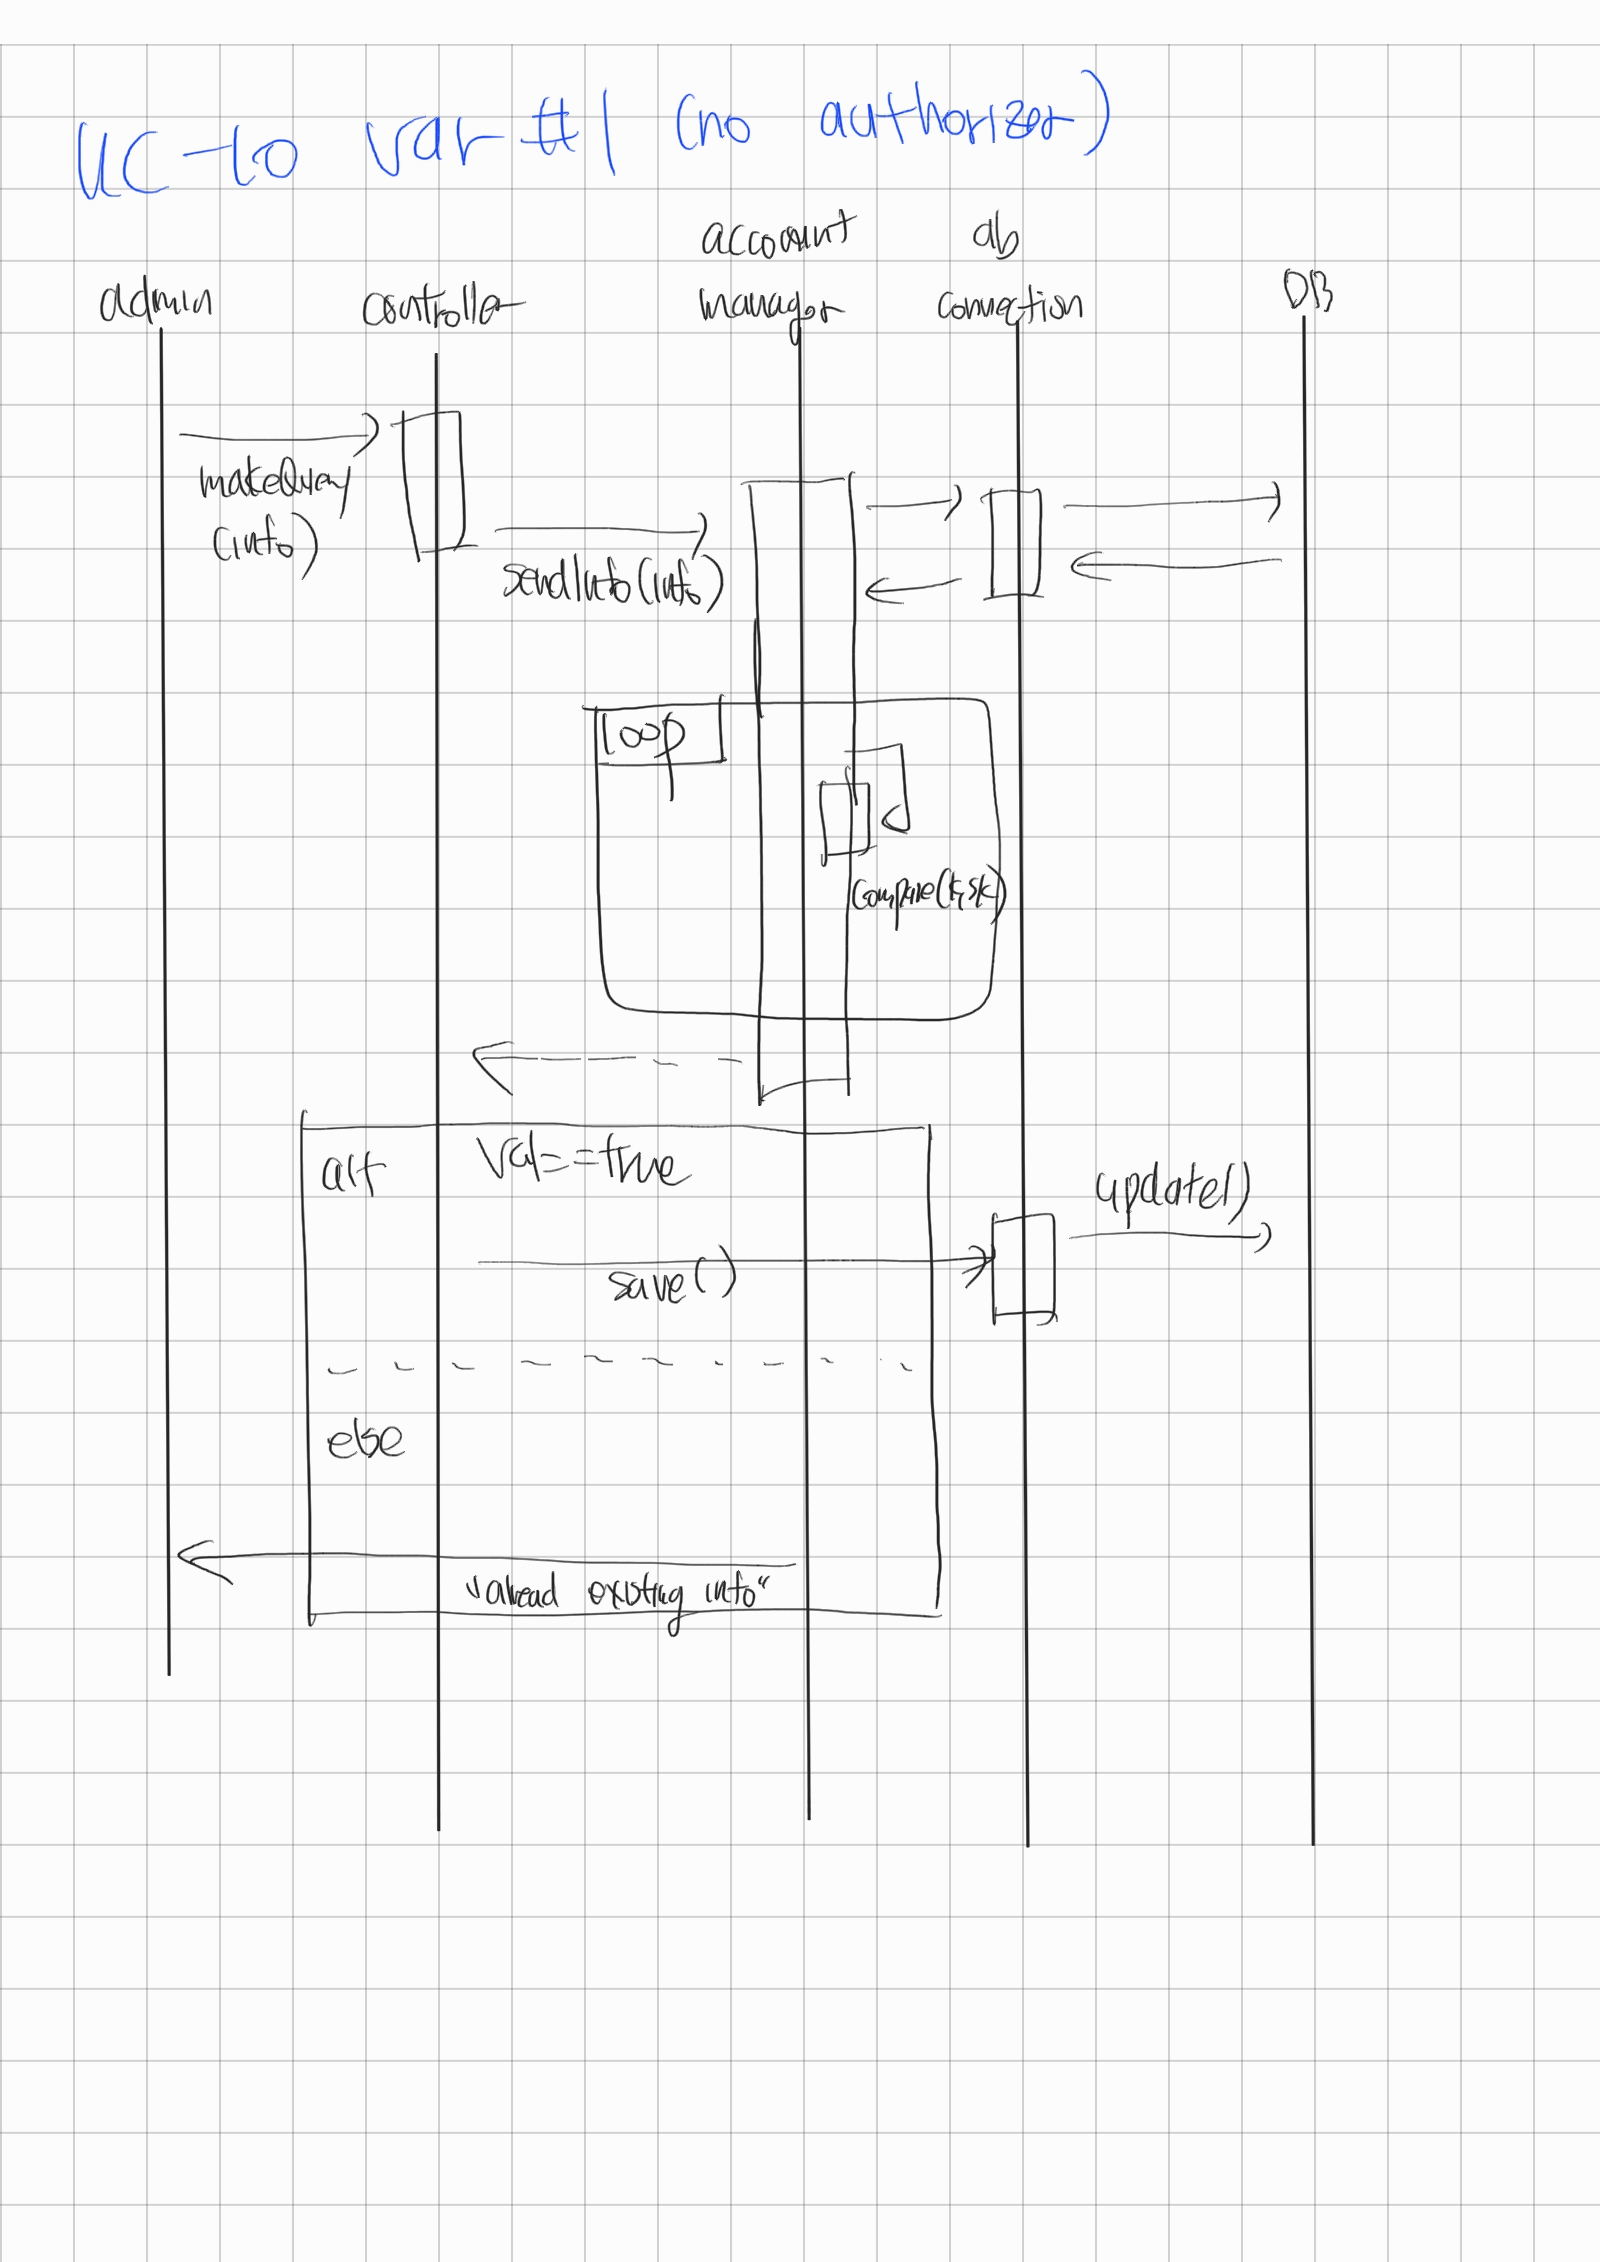 UC-10 var #1 (no authorizer)
admin
controller
account
manager
db
connection
DB
makeQuery
(info)
sendInfo(info)
loop
compare(k,sk)
alt
val==true
update()
save()
else
"alread existing info"